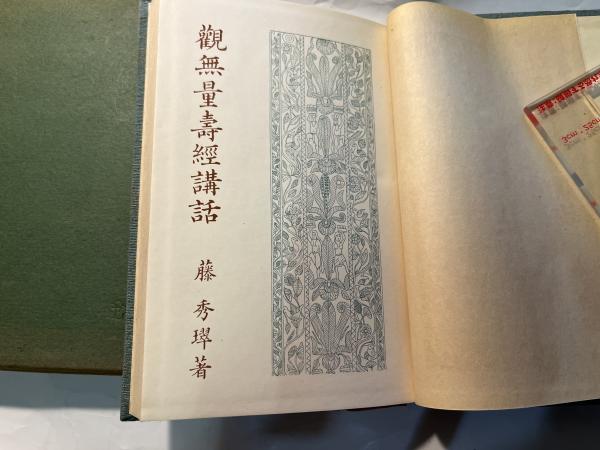 觀無量壽經講話
藤秀璻著